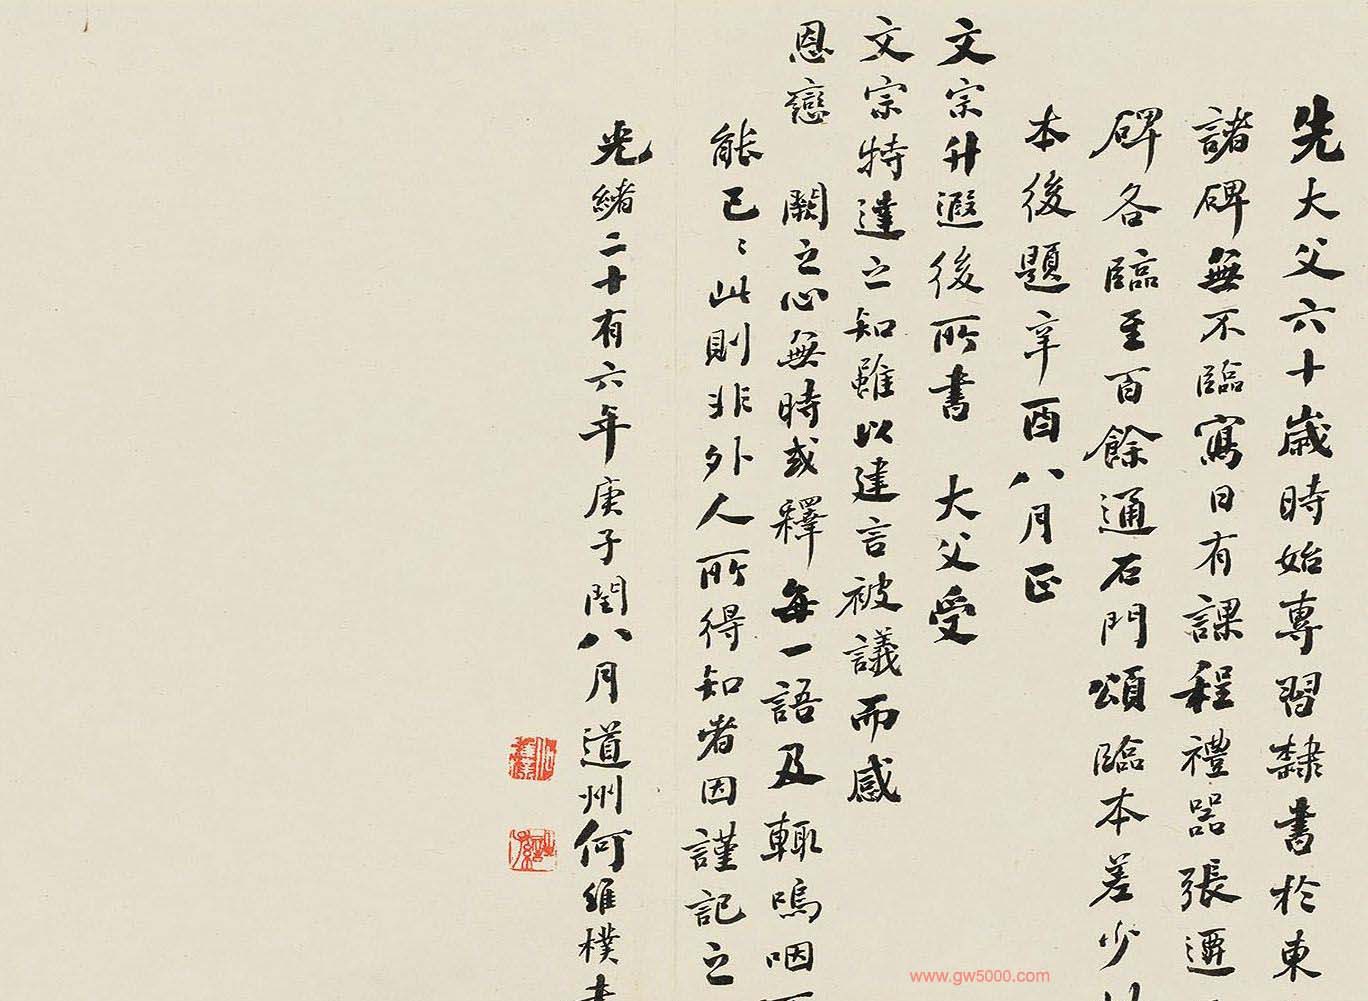 先大父六十歲時始專習隸書於東
諸碑無不臨寫日有課程禮器張遷
碑各臨至百餘通石門頌臨本差少
本後題辛酉八月正
文宗升遐後所書 大父受
文宗特達之知雖以建言被議而感
恩戀 闕之心無時或釋每一語及輒嗚咽
能已〻此則非外人所得知者因謹記之
光緒二十有六年庚子閏八月道州何維樸
www.gw5000.com